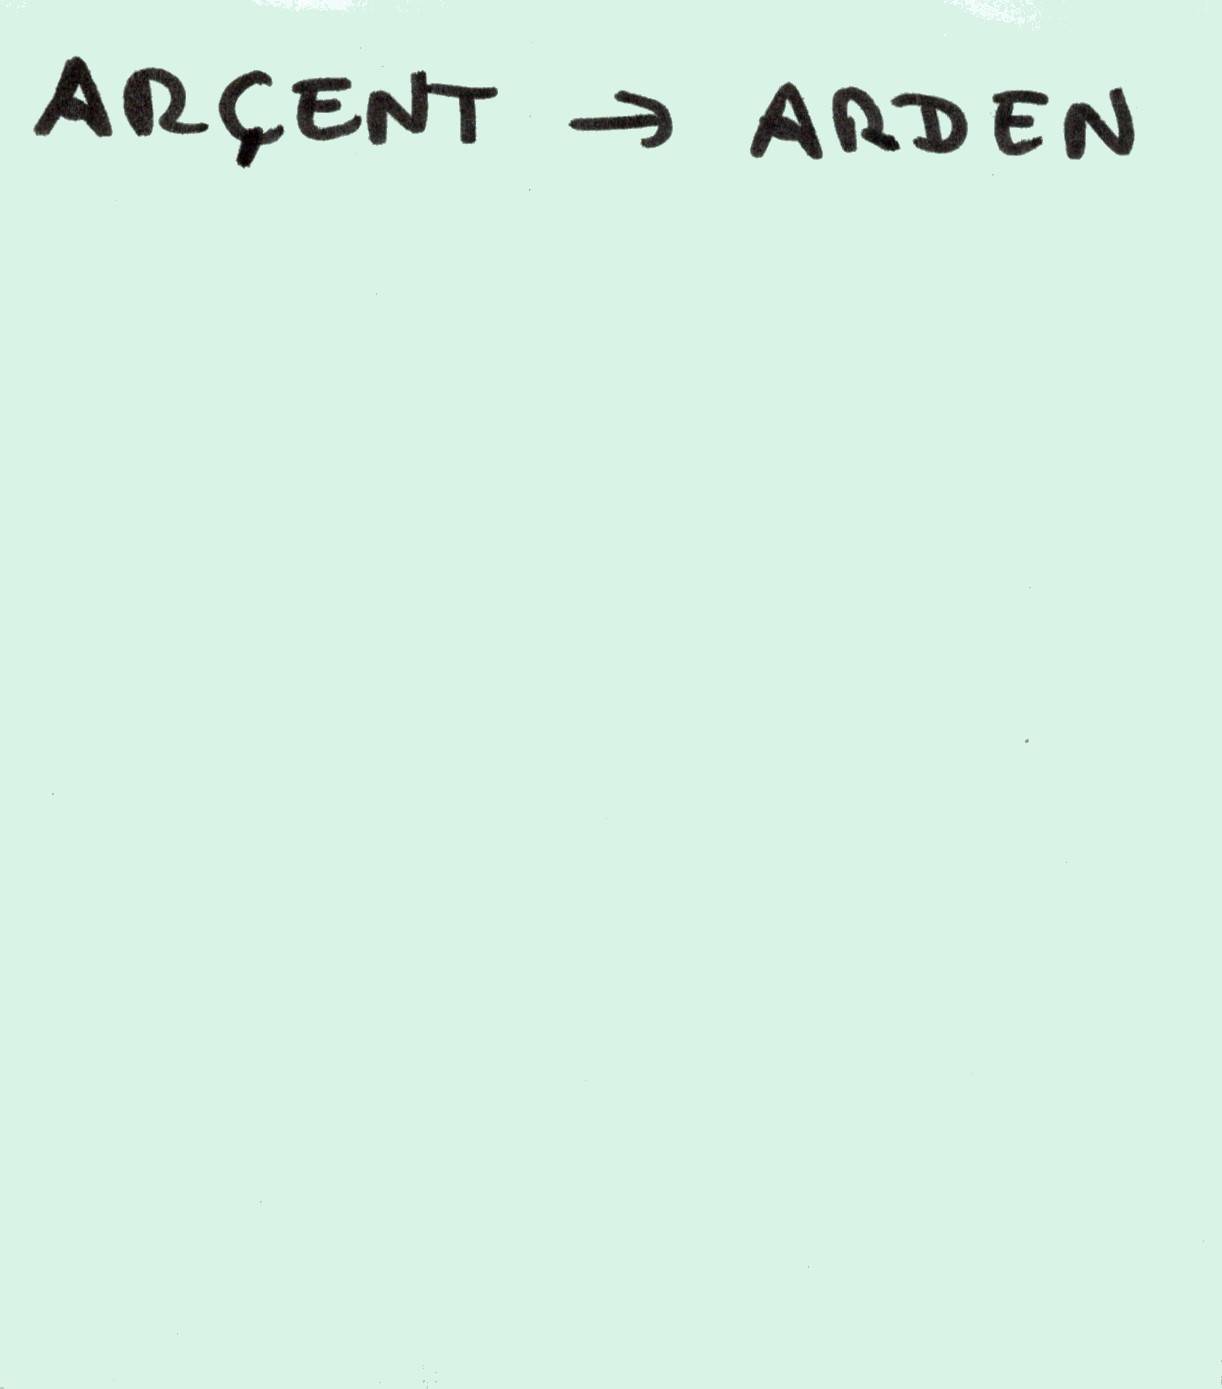 ARÇENT → ARDEN